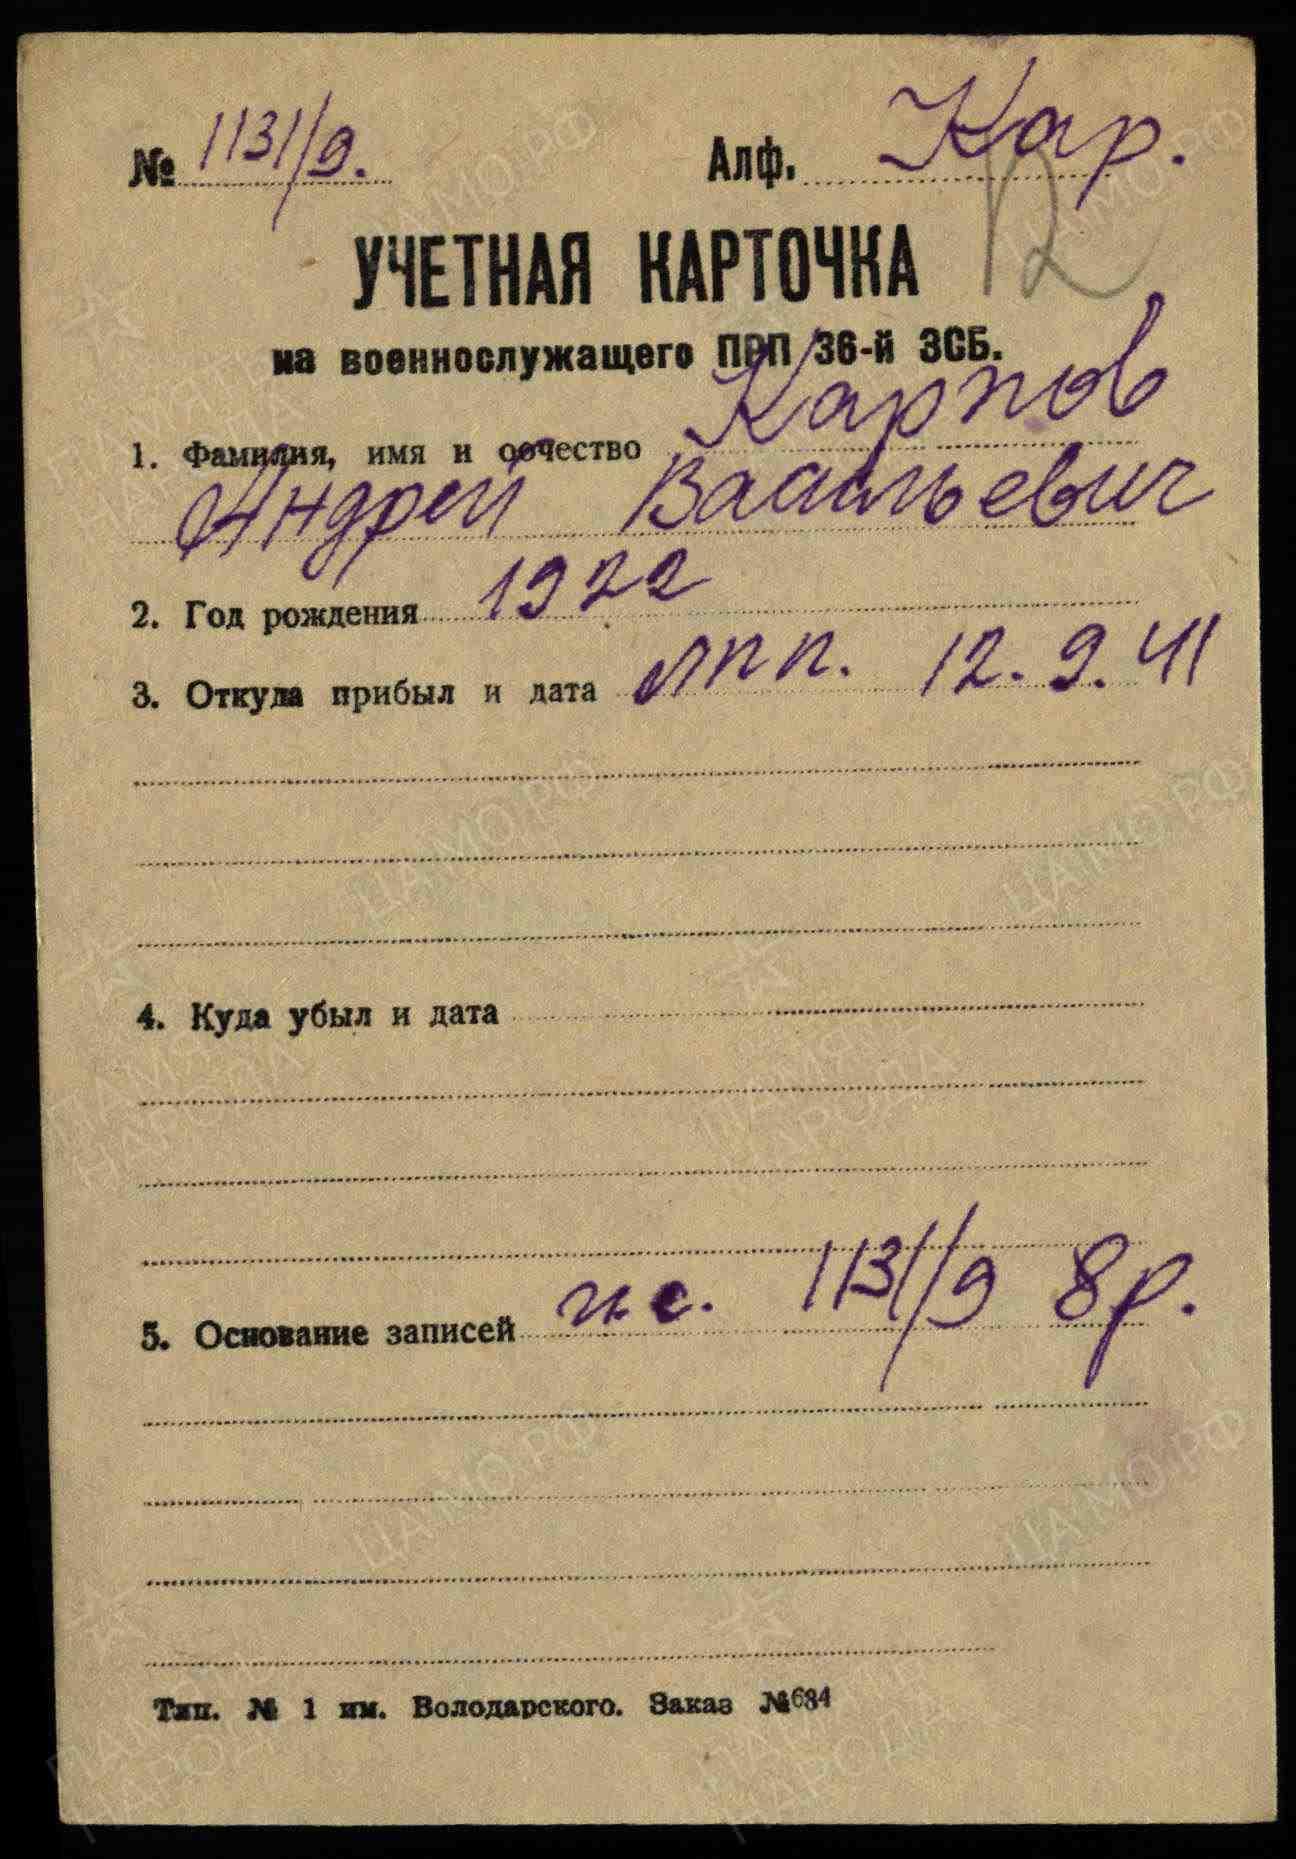 № 1131/9. Алф. Кар.
12
УЧЕТНАЯ КАРТОЧКА
на военнослужащего ПРП 36-й ЗСБ.
1. Фамилия, имя и отчество Карпов
Андрей Васильевич
2. Год рождения 1922
3. Откуда прибыл и дата ЛПП. 12.9.41
4. Куда убыл и дата
5. Основание записей 1131/9 8р.
Тип. № 1 им. Володарского. Заказ №684
ЦА МО РФ
ПАМЯТЬ НАРОДА